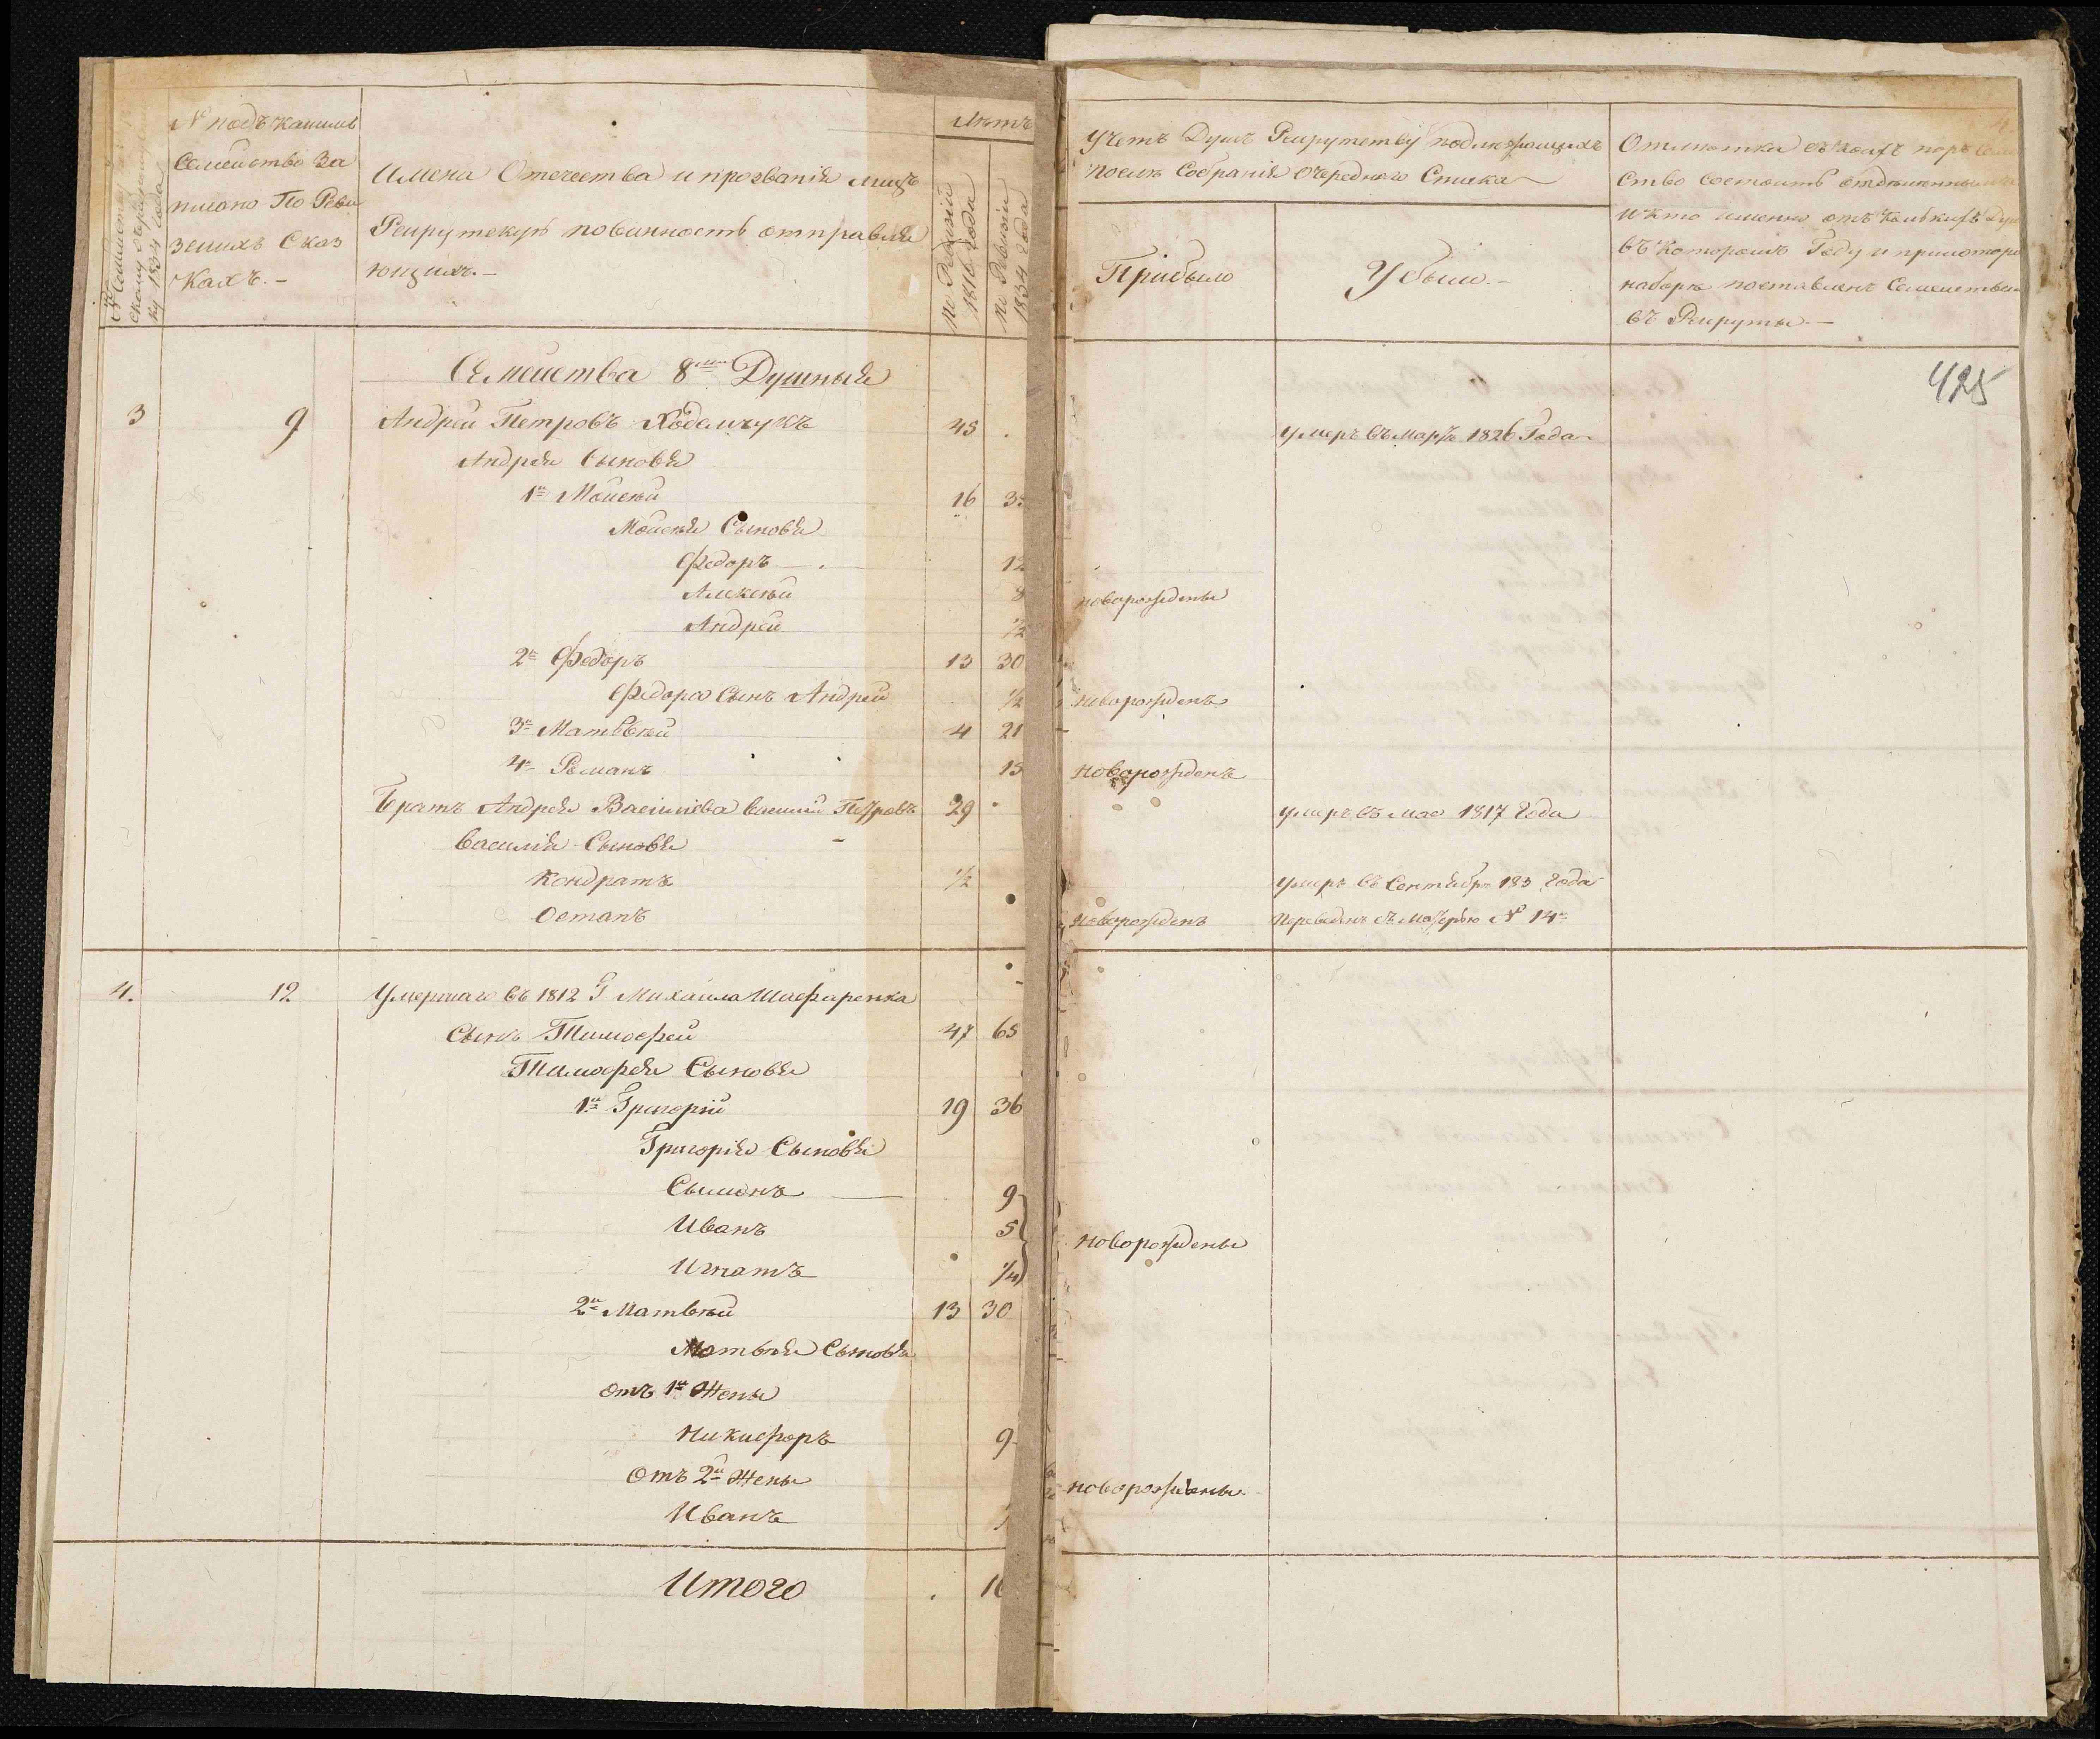 № Семейства
скому очередному спис
ку 1834 года
№ подъ каким
Семейство За
писано По Реви
зскихъ Сказ
Кахъ. –
Имена Отечества и прозванія лицъ
Рекрутскую повинность отправля
ющихъ. –
Лѣтъ
по Ревизіи
1816 Года
по Ревизіи
1834 года
Учетъ Душъ Рекрутству подлежащихъ
послѣ Собранія Очередного Списка
Прибыло
Убыло. –
Отмѣтка съ коихъ поръ Семе
ство состоитъ отдѣленнымъ
и кто именно отъ колькихъ Душ
въ которомъ Году и при котором
наборѣ поставленъ Семействомъ
въ Рекруты. –
425
Семейства 8ми Душныя
3 9 Андрей Петровъ Ходемчукъ 45 умеръ въ Мартѣ 1826 Года
Андрея Сыновья
1й Моисей 16 3
Моисея Сыновья
Федоръ 12
Алексѣй 8 новорождены
Андрей 1/2
2й Федоръ 13 30
Федора Сынъ Андрей 1/2 новорожденъ
3й Матвѣй 4 21
4й Романъ 15 новорожденъ
Братъ Андрея Василіева Василій Петровъ 29 умеръ въ мае 1817 Года
Василія Сыновья
Кондратъ 1/2 умеръ въ Сентябрѣ 183 Года
Остапъ новорожденъ переведенъ съ Матерью № 14й
4. 12 Умершаго въ 1812 Г Михайла Шафаренка
Сынъ Тимофей 47 65
Тимофея Сыновья
1й Григорій 19 36
Григорія Сыновья
Сымонъ 9
Иванъ 5 новорождены
Игнатъ 1/4
2й Матвѣй 13 30
Матвѣя Сыновья
отъ 1й Жены
Никифоръ 9
Отъ 2й Жены
новорождены
Иванъ
Итого 16